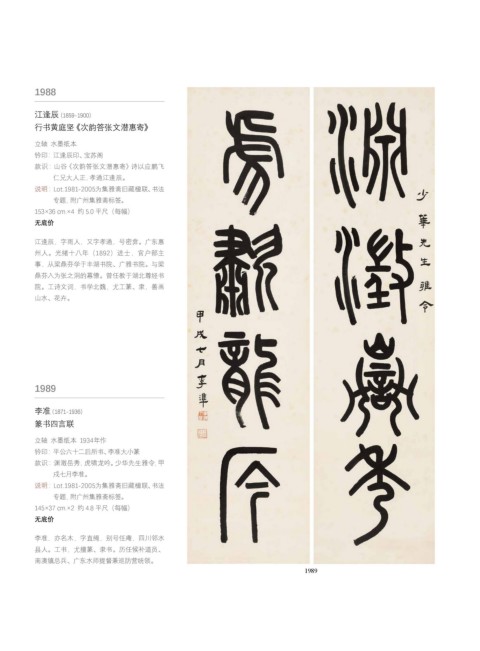 1988
江逢辰 (1859-1900)
行书黄庭坚《次韵答张文潜惠寄》
立轴 水墨纸本
钤印：江逢辰印、宝苏阁
款识：山谷《次韵答张文潜惠寄》诗以应鹏飞
仁兄大人正，孝通江逢辰。
说明：Lot.1981-2005为集雅斋旧藏楹联、书法
专题，附广州集雅斋标签。
153×36 cm.×4 约 5.0 平尺（每幅）
无底价
江逢辰，字雨人，又字孝通，号密盦。广东惠
州人。光绪十八年（1892）进士，官户部主
事，从梁鼎芬学于丰湖书院、广雅书院。与梁
鼎芬入为张之洞的幕僚。曾任教于湖北尊经书
院。工诗文词，书学北魏，尤工篆、隶，善画
山水、花卉。
1989
李准 (1871-1936)
篆书四言联
立轴 水墨纸本 1934年作
款识：渊澄岳秀，虎啸龙吟。少华先生雅令，甲
戌七月李准。
说明：Lot.1981-2005为集雅斋旧藏楹联、书法
专题，附广州集雅斋标签。
145×37 cm.×2 约 4.8 平尺（每幅）
无底价
李准，亦名木，字直绳，别号任庵，四川邻水
县人。工书，尤擅篆、隶书。历任候补道员、
南澳镇总兵、广东水师提督兼巡防营统领。
渊澄嶽秀
少华先生雅令
虎啸龙吟
甲戌七月李准
1989